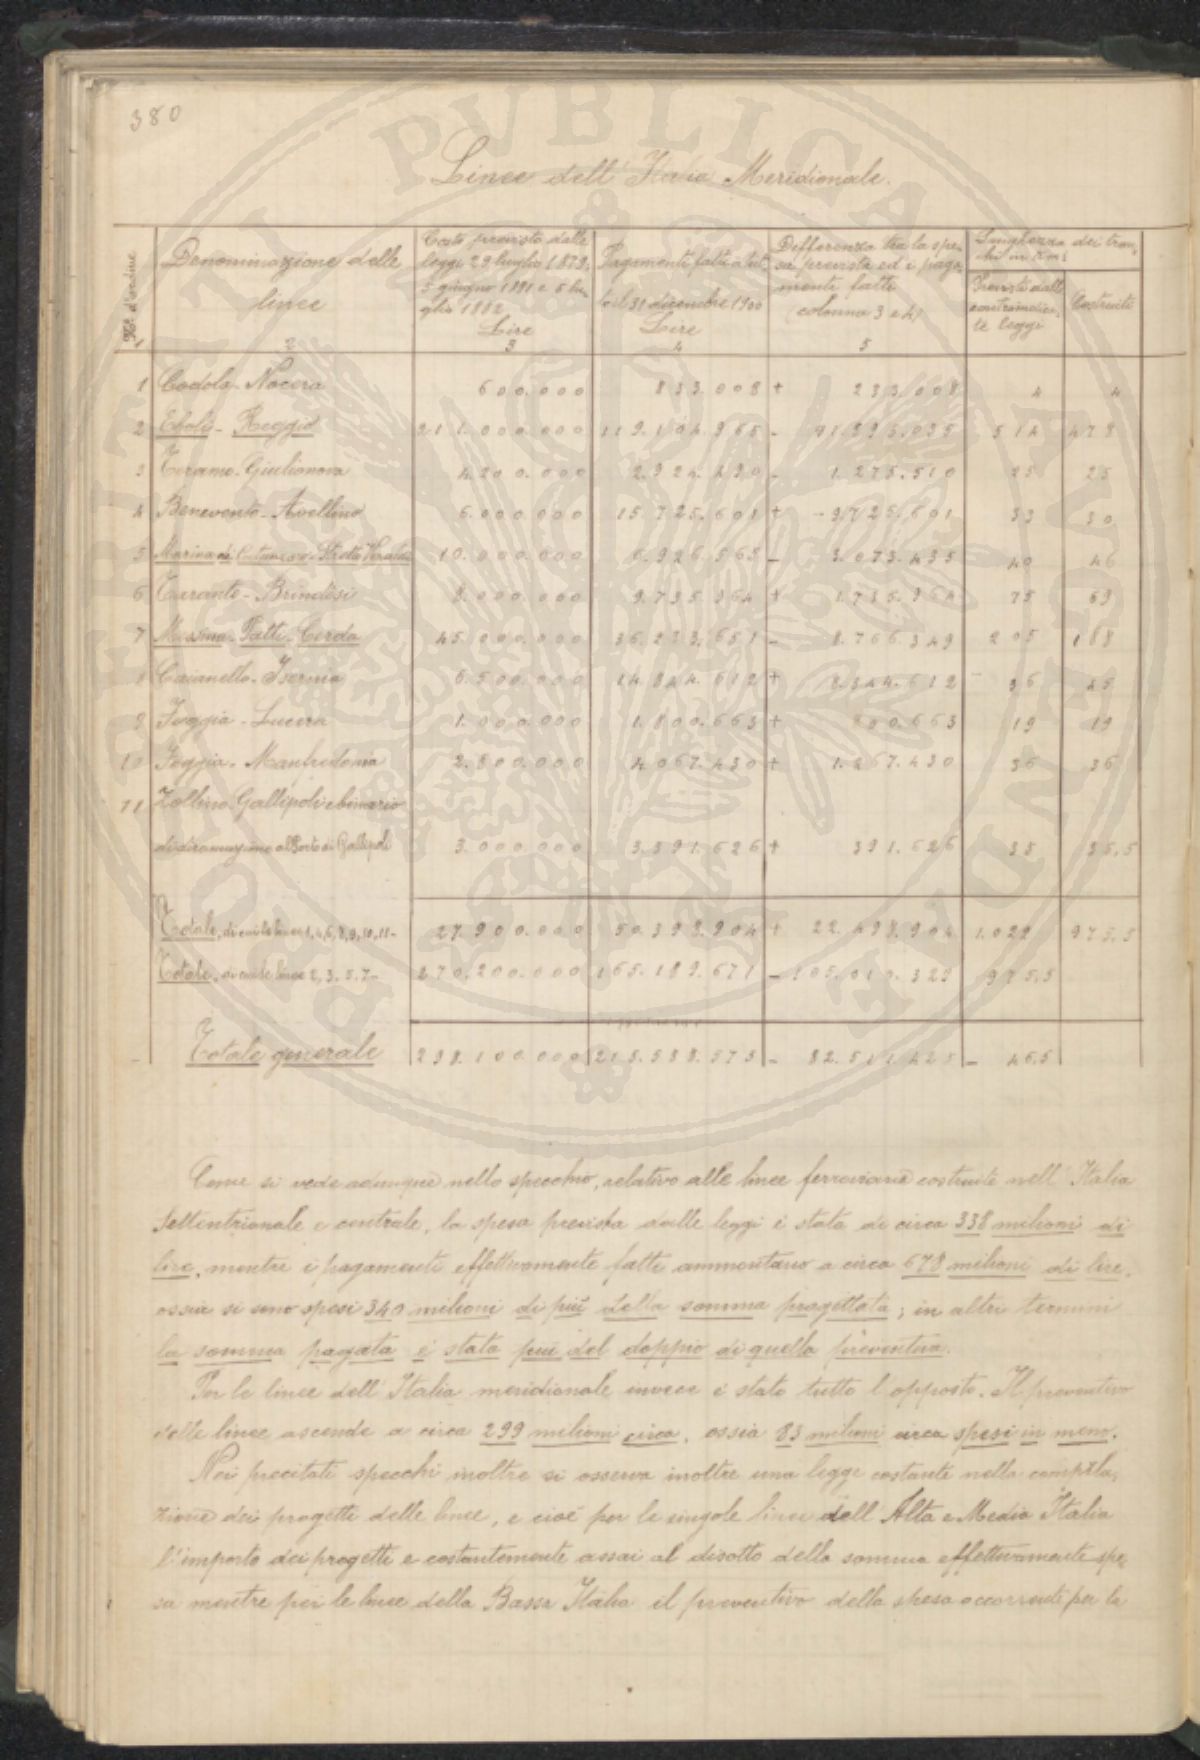 380
Linee dell'Italia Meridionale.
N.° d'ordine
1
Denominazione delle
linee
2
Costo previsto dalle
leggi 29 luglio 1879,
5 giugno 1881 e 5 lu-
glio 1882
Lire
3
Pagamenti fatti a tut-
to il 31 dicembre 1900
Lire
4
Differenza tra la spe-
sa prevista ed i paga-
menti fatti
(colonna 3 e 4)
5
Lunghezza dei tron-
chi in Km:
Previsti dalle
contromenzio-
te leggi
Costruiti
1 Codola - Nocera 600.000 833.008 + 233.008 4 4
2 Eboli - Reggio 211.000.000 119.104.965 - 91.895.035 514 478
3 Teramo - Giulianova 4.200.000 2.924.490 - 1.275.510 25 25
4 Benevento - Avellino 6.000.000 15.725.601 + 9.725.601 33 30
5 Marina di Catanzaro - Stretto Veraldi 10.000.000 6.926.565 - 3.073.435 40 46
6 Taranto - Brindisi 8.000.000 9.735.964 + 1.735.964 75 69
7 Messina - Patti - Cerda 45.000.000 36.233.651 - 8.766.349 205 188
8 Caianello - Isernia 6.500.000 14.844.612 + 8.344.612 36 45
9 Foggia - Lucera 1.000.000 1.800.663 + 800.663 19 19
10 Foggia - Manfredonia 2.800.000 4.067.430 + 1.267.430 36 36
11 Zollino - Gallipoli e binario
di diramazione al Porto di Gallipoli 3.000.000 3.391.626 + 391.626 35 35,5
Totale, di cui le linee 1,4,6,8,9,10,11- 27.900.000 50.398.904 + 22.498.904 1.022 975,5
Totale, di cui le linee 2, 3. 5. 7- 270.200.000 165.189.671 - 105.010.329 975,5
Totale generale 298.100.000 215.588.575 - 82.511.425 - 46,5
Come si vede adunque nello specchio, relativo alle linee ferroviarie costruite nell'Italia
Settentrionale e centrale, la spesa prevista dalle leggi è stata di circa 338 milioni di
lire, mentre i pagamenti effettivamente fatti ammontano a circa 678 milioni di lire,
ossia si sono spesi 340 milioni di più della somma progettata; in altri termini
la somma pagata è stata più del doppio di quella preventiva.
Per le linee dell'Italia meridionale invece è stato tutto l'opposto. Il preventivo
delle linee ascende a circa 299 milioni circa, ossia 83 milioni circa spesi in meno.
Nei precitati specchi inoltre si osserva inoltre una legge costante nella compila-
zione dei progetti delle linee, e cioè per le singole linee dell'Alta e Media Italia
l'importo dei progetti e costantemente assai al disotto della somma effettivamente spe-
sa mentre per le linee della Bassa Italia il preventivo della spesa occorrente per la